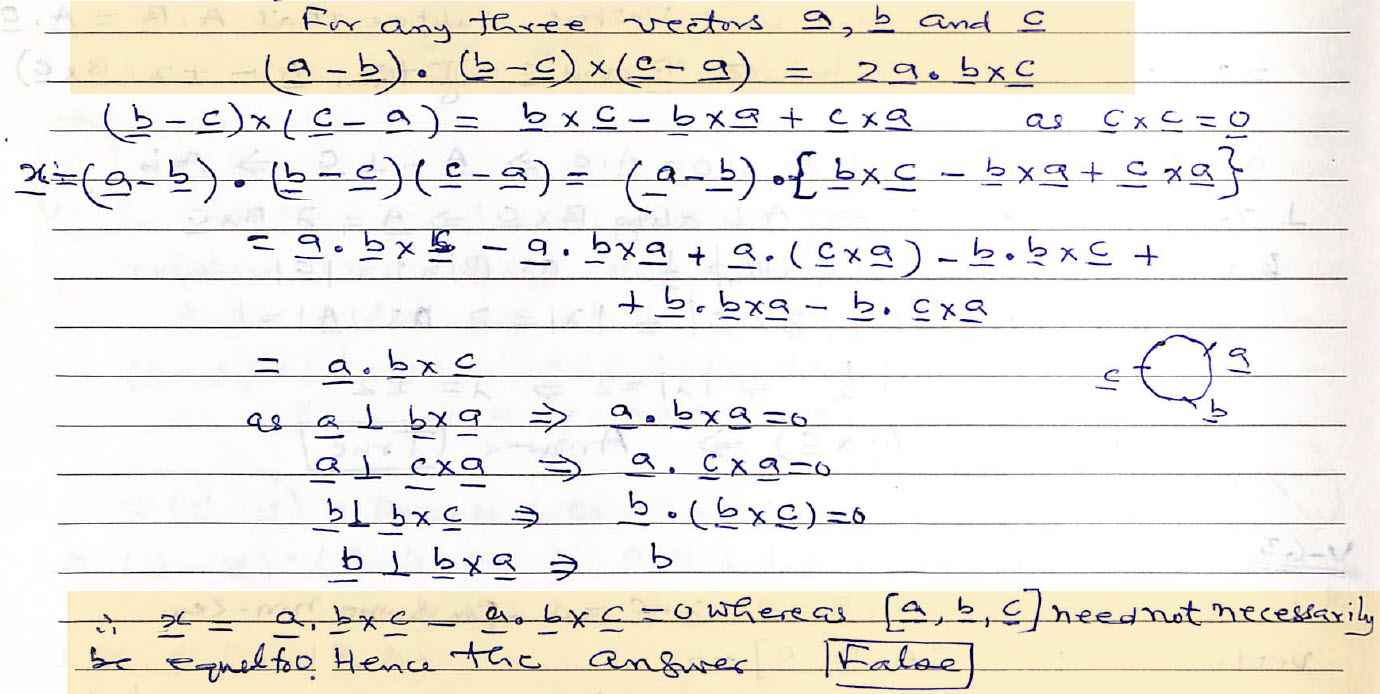 For any three vectors a, b and c
(a - b) . (b - c) × (c - a) = 2 a . b × c
(b - c) × (c - a) = b × c - b × a + c × a as c × c = 0
x = (a - b) . (b - c) (c - a) = (a - b) . { b × c - b × a + c × a }
= a . b × c - a . b × a + a . ( c × a ) - b . b × c +
+ b . b × a - b . c × a
= a . b × c
c a b
as a ⊥ b × a ⇒ a . b × a = 0
a ⊥ c × a ⇒ a . c × a = 0
b ⊥ b × c ⇒ b . ( b × c ) = 0
b ⊥ b × a ⇒ b
∴ x = a . b × c - a . b × c = 0 whereas [a, b, c] need not necessarily
be equal to 0. Hence the answer False